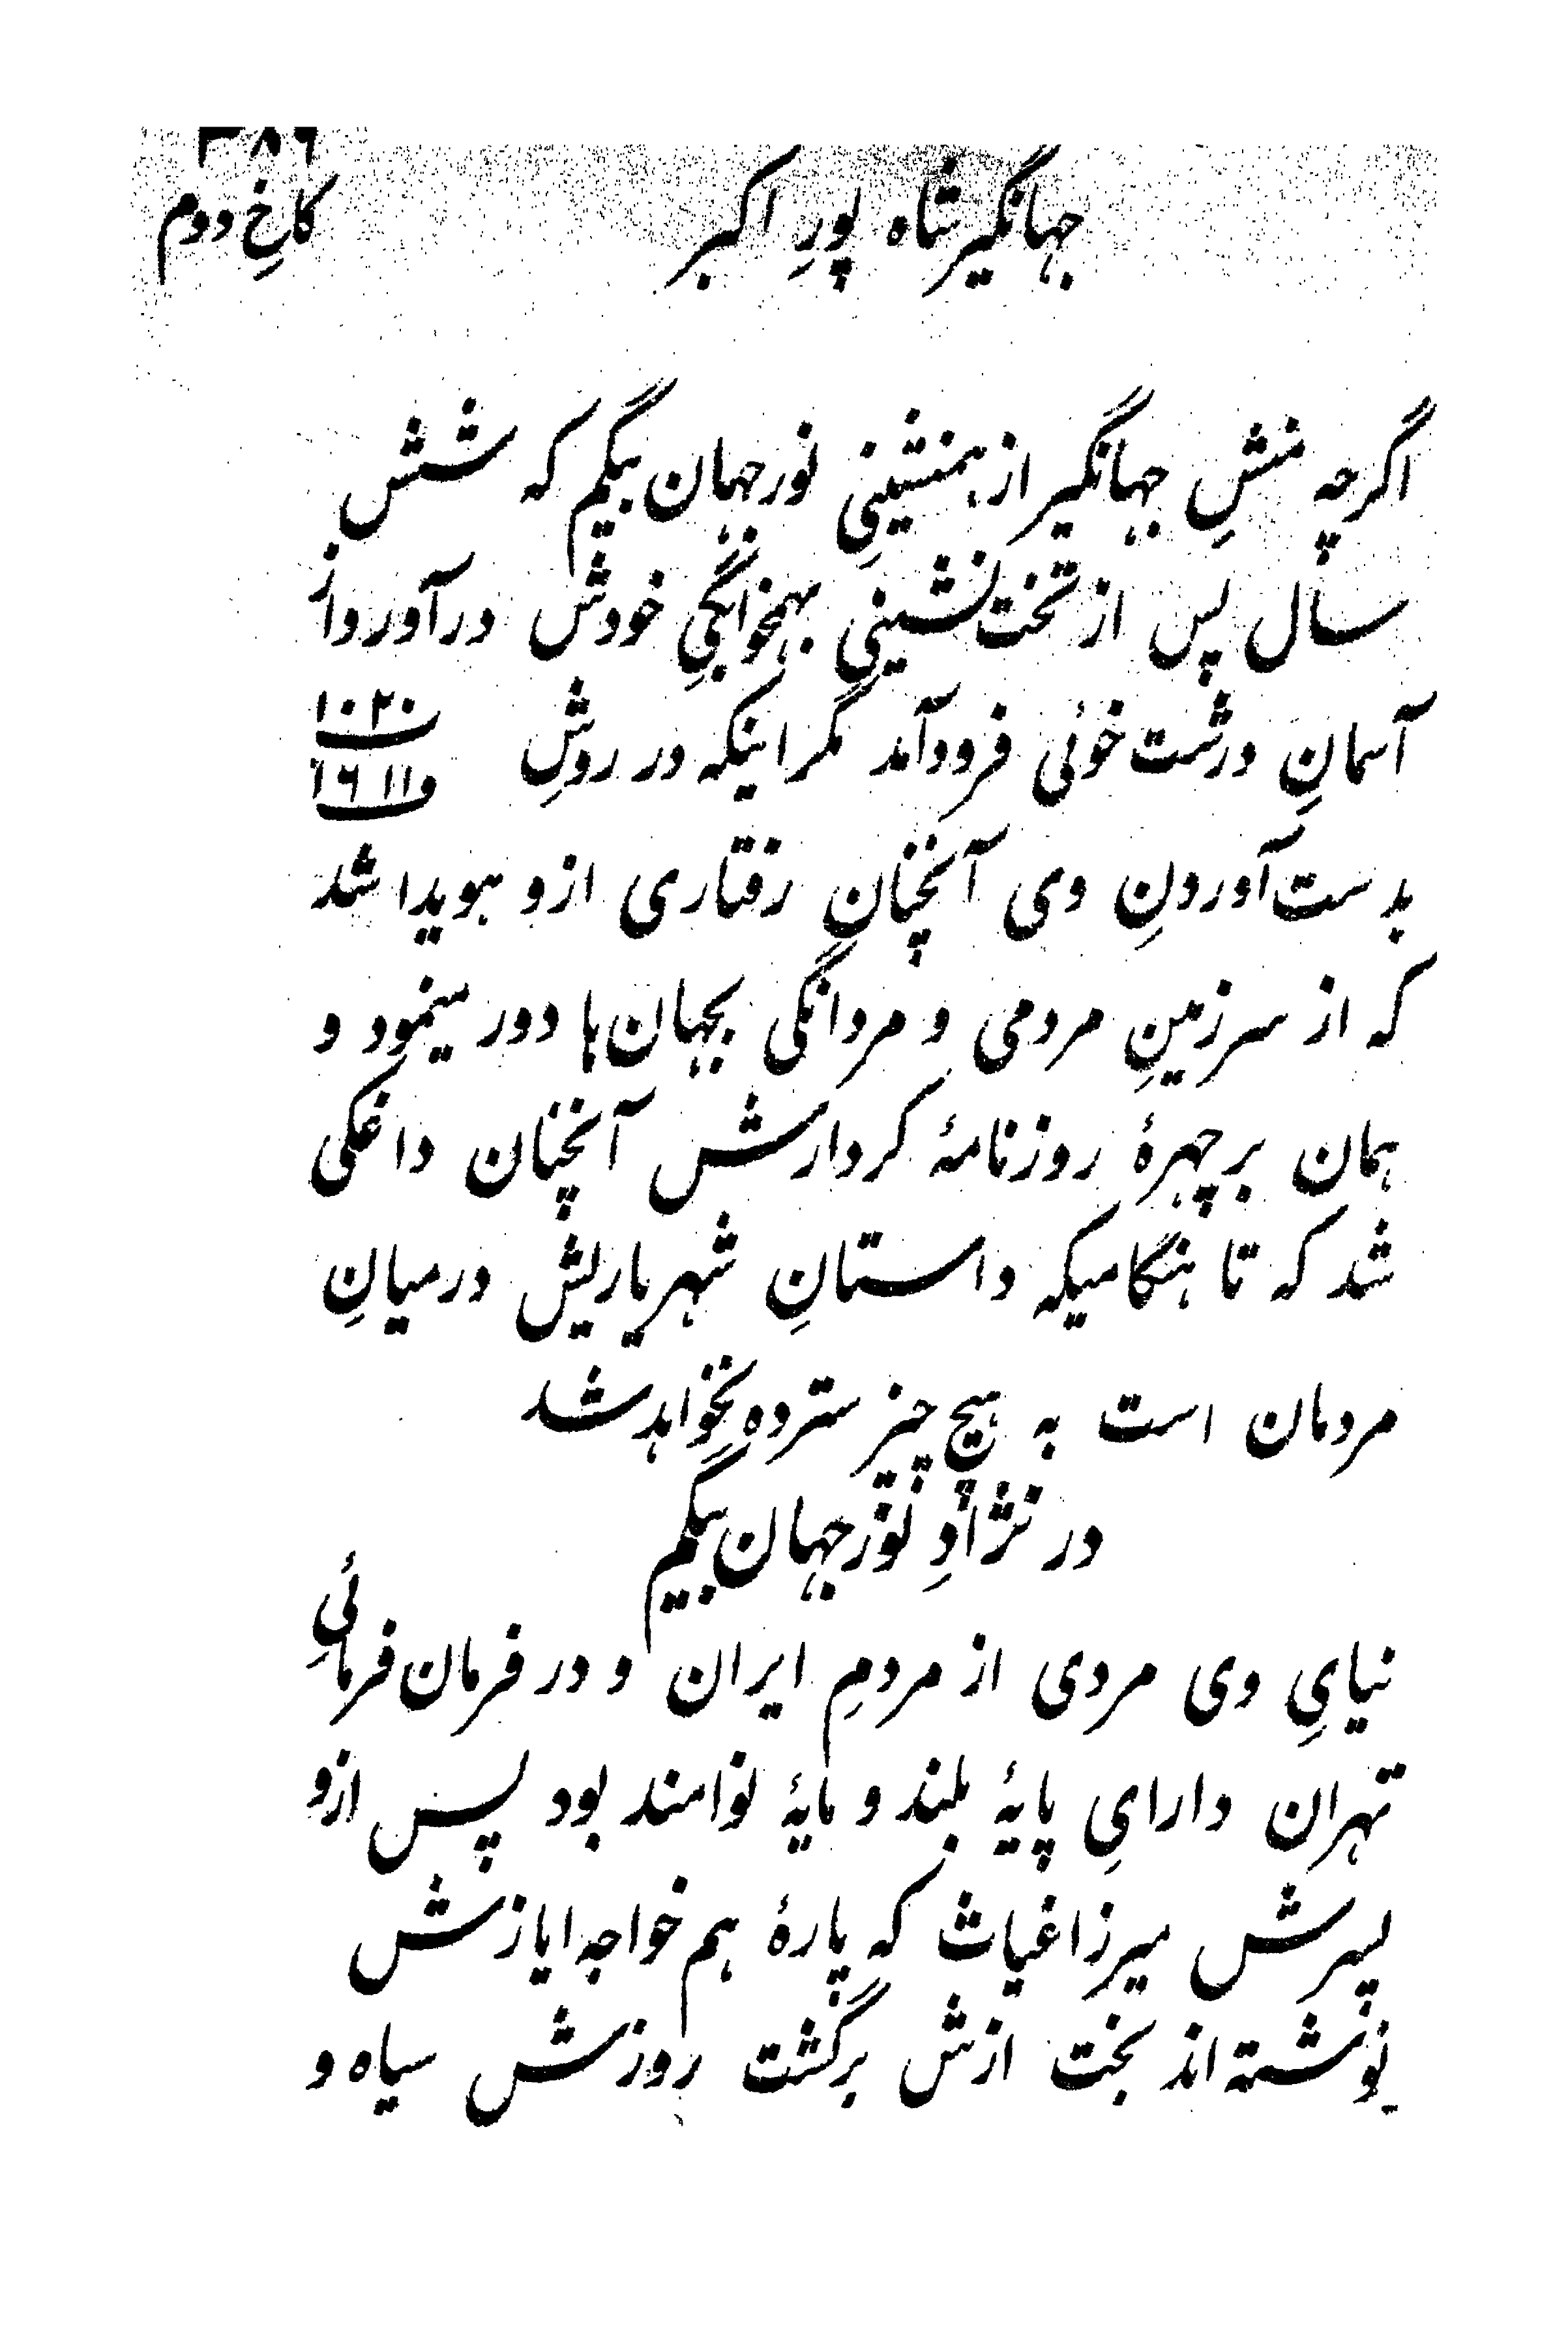 جهانگیرشاه پورِ اکبر
کاخِ دوم
اگرچه منشِ جهانگیر از همنشینیِ نورجهان بیگم که شش
سال پس از تخت‌نشینی بهمخوابگیِ خودش درآورد از
آسمانِ درشت‌خوئی فرودآمد مگر اینکه در روشِ
۱۰۲۰
۱۶۱۱
بدست‌آوردنِ وی آنچنان رفتاری ازو هویدا شد
که از سرزمینِ مردمی و مردانگی بجهان‌ها دور مینمود و
همان بر چهرهٔ روزنامهٔ کردارش آنچنان داغکی
شد که تا هنگامیکه داستانِ شهریاریش در میانِ
مردمان است به هیچ چیز سترده نخواهد شد
در نژادِ نورجهان بیگم
نیایِ وی مردی از مردمِ ایران و در فرمان‌فرمائیِ
تهران دارایِ پایهٔ بلند و مایهٔ نوامند بود پس ازو
پسرش میرزا غیاث که پارهٔ هم خواجه ایازش
نوشته‌اند بخت ازش برگشت روزش سیاه و